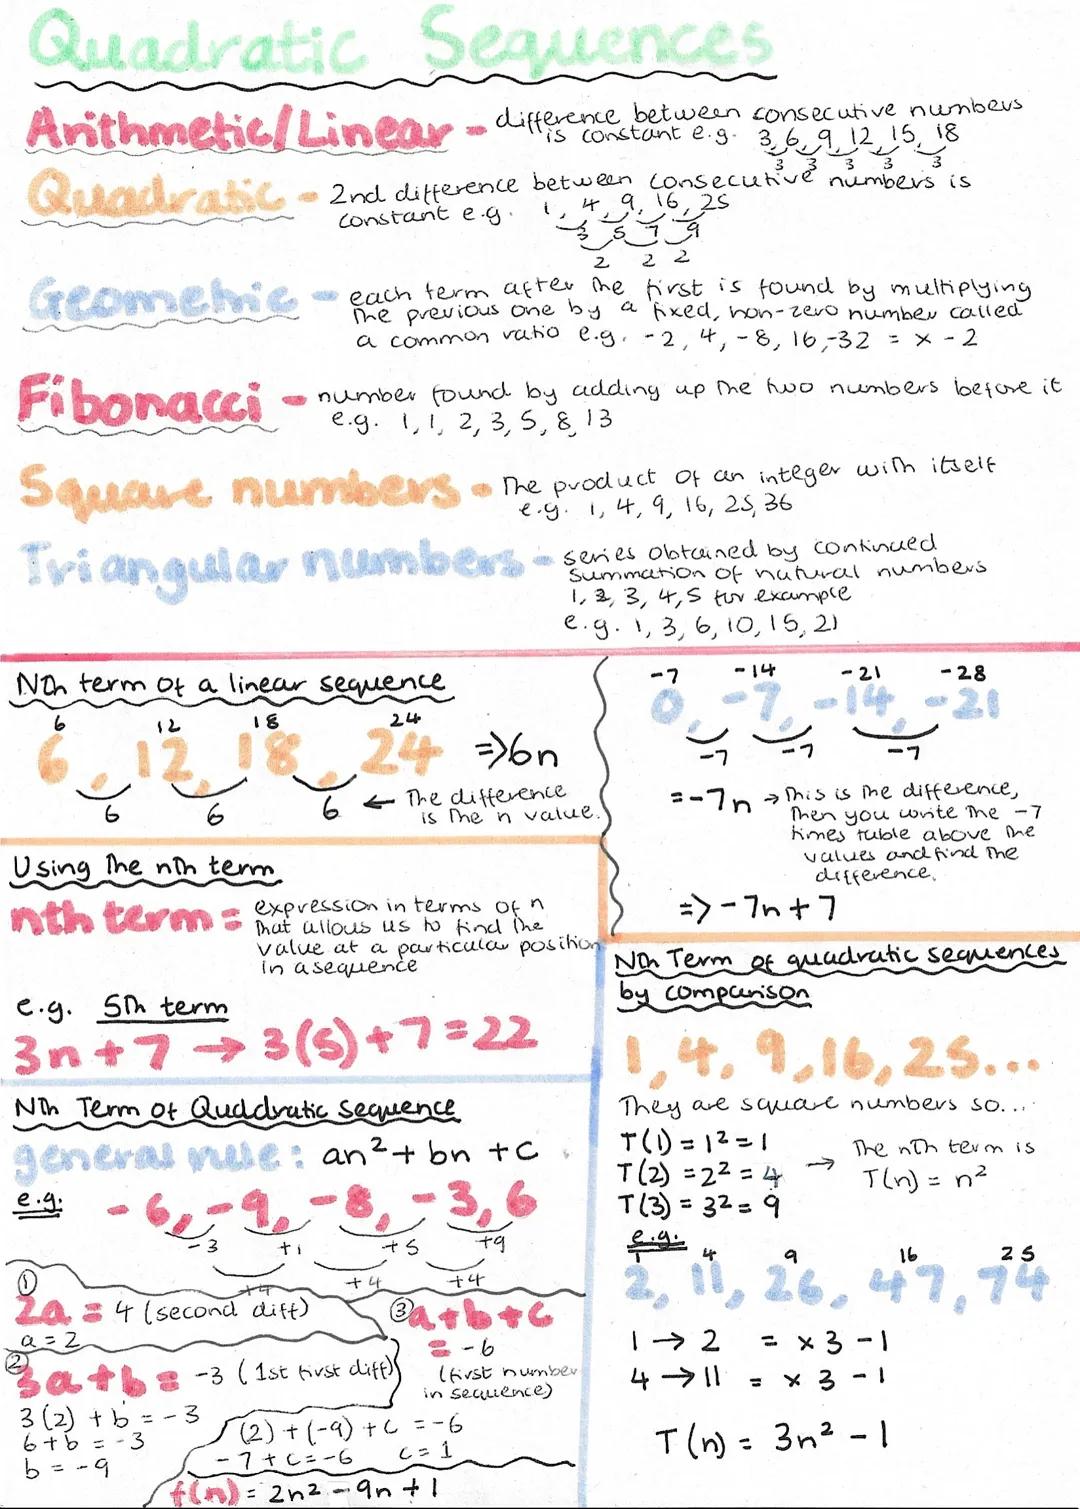 Quadratic Sequences
Arithmetic/Linear - difference between consecutive numbers
is constant e.g. 3, 6, 9, 12, 15, 18
3 3 3 3 3
Quadratic - 2nd difference between consecutive numbers is
constant e.g. 1, 4, 9, 16, 25
3 5 7 9
2 2 2
Geometric - each term after the first is found by multiplying
the previous one by a fixed, non-zero number called
a common ratio e.g. -2, 4, -8, 16, -32 = x -2
Fibonacci - number found by adding up the two numbers before it
e.g. 1, 1, 2, 3, 5, 8, 13
Square numbers - The product of an integer with itself
e.g. 1, 4, 9, 16, 25, 36
Triangular numbers - series obtained by continued
summation of natural numbers
1, 2, 3, 4, 5 for example
e.g. 1, 3, 6, 10, 15, 21
Nth term of a linear sequence
6 12 18 24
6, 12, 18, 24 => 6n
6 6 6 ← The difference
is the n value.
-7 -14 -21 -28
0, -7, -14, -21
-7 -7 -7
= -7n → This is the difference,
then you write the -7
times table above the
values and find the
difference.
=> -7n + 7
Using the nth term
nth term = expression in terms of n
that allows us to find the
value at a particular position
in a sequence
e.g. 5th term
3n + 7 → 3(5) + 7 = 22
Nth Term of Quadratic sequence
general rule: an² + bn + c
e.g. -6, -9, -8, -3, 6
-3 +1 +5 +9
+4 +4 +4
① 2a = 4 (second diff)
a = 2
② 3a + b = -3 (1st first diff)
3(2) + b = -3
6 + b = -3
b = -9
③ a + b + c
= -6
(first number
in sequence)
(2) + (-9) + c = -6
-7 + c = -6 c = 1
f(n) = 2n² - 9n + 1
Nth Term of quadratic sequences
by comparison
1, 4, 9, 16, 25...
They are square numbers so...
T(1) = 1² = 1
T(2) = 2² = 4
T(3) = 3² = 9
→ The nth term is
T(n) = n²
e.g.
1 4 9 16 25
2, 11, 26, 47, 74
1 → 2 = x 3 - 1
4 → 11 = x 3 - 1
T(n) = 3n² - 1